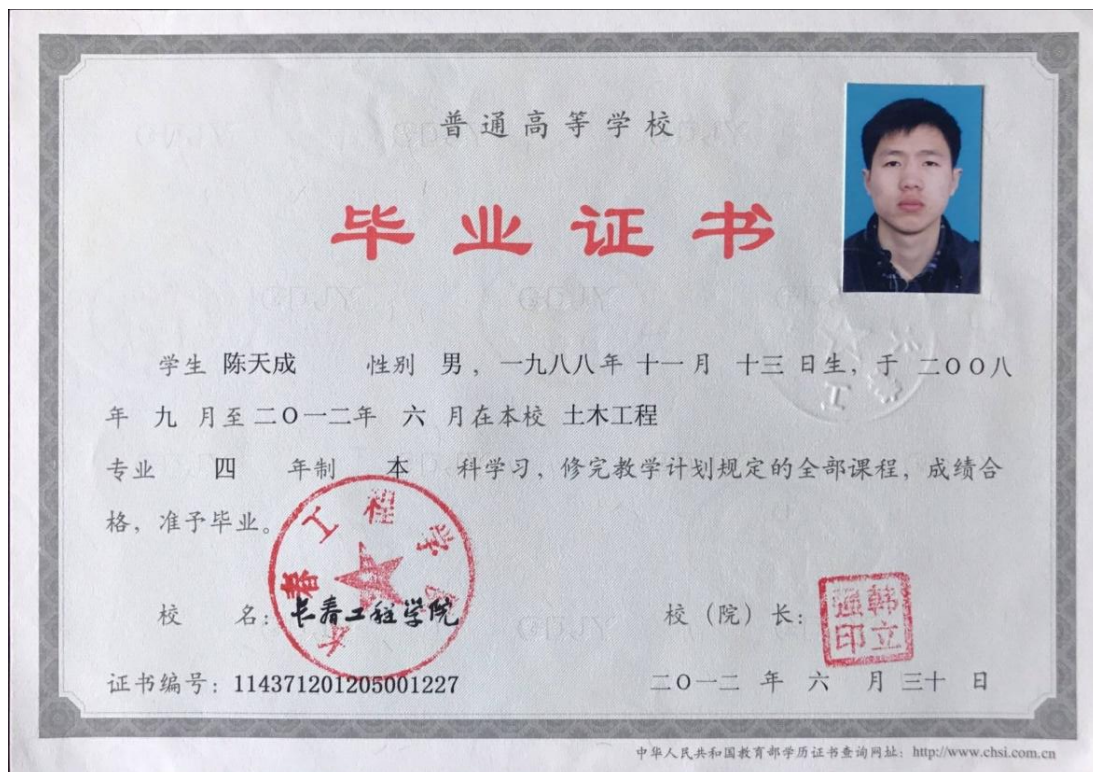 普通高等学校
毕业证书
学生 陈天成 性别 男，一九八八年 十一月 十三 日生，于 二〇〇八
年 九 月至二〇一二年 六 月在本校 土木工程
专业 四 年制 本 科学习，修完教学计划规定的全部课程，成绩合
格，准予毕业。
长春工程学院
校 名：长春工程学院 校（院）长：
韩立
通印
证书编号：114371201205001227 二〇一二 年 六 月 三十 日
中华人民共和国教育部学历证书查询网址：http://www.chsi.com.cn